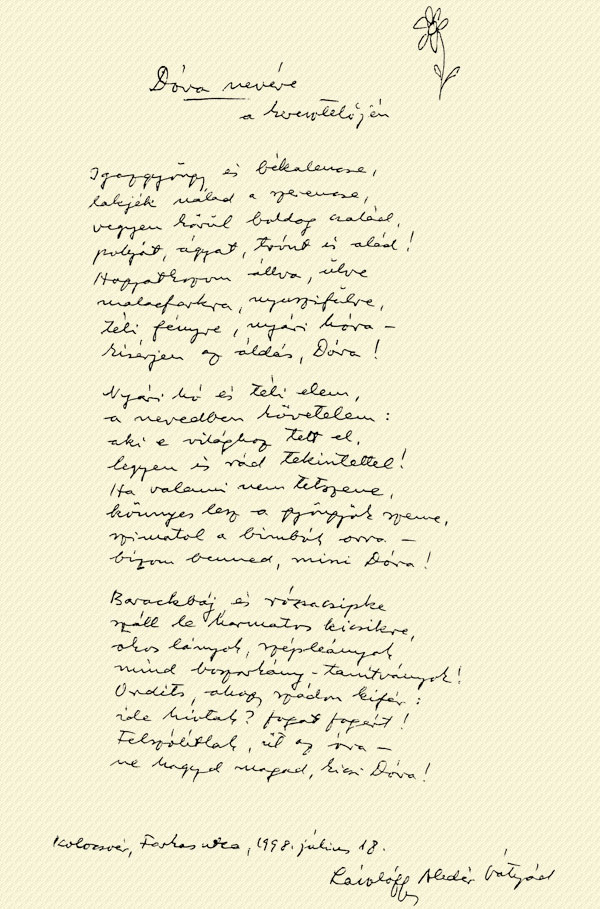 Dóra nevére
a keresztelőjén
Igazgyöngy és békalencse,
lakjék nálad a szerencse,
vegyen körül boldog család,
pólyát, ágyat, trónt is alád!
Hogyatkozom állva, ülve
malacfarkra, nyuszifülre,
téli fényre, nyári hóra –
kísérjen az áldás, Dóra!
Nyári hó és téli elem,
a nevedben követelem:
aki e világhoz tett el,
legyen is rád tekintettel!
Ha valami nem tetszene,
könnyes lesz a gyöngyök szeme,
szimatol a bimbók orra –
bízom benned, mini Dóra!
Barackbáj és rózsacsipke
száll le harmatos kicsikre,
okos lányok, szépleányok
mind boszorkány-tanítványok!
Ordíts, ahogy szádon kifér:
ide hívtak? fogat fogért!
Felszólítlak, üt az óra –
ne hagyd magad, kicsi Dóra!
Kolozsvár, Farkas utca, 1998. július 18.
Lászlóffy Aladár bátyád